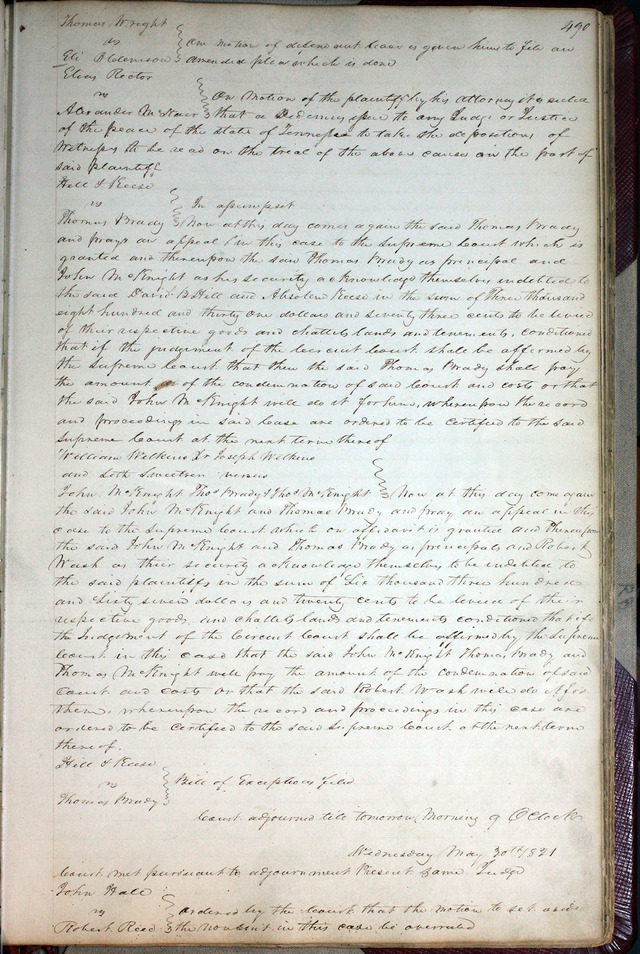 490
Thomas Wright
vs
On motion of defendant leave is given him to file an
Eli B Clemson
amended plea which is done
Elias Rector
vs
On Motion of the plaintiff by his Attorney it is ruled
Alexander McNair that a Dedimus issue to any Judge or Justice
of the peace of the state of Tennessee to take the depositions of
Witnesses to be read on the trial of the above cause on the part of
said plaintiff
Hill & Keese
vs
In assumpset
Thomas Brady Now at this day comes again the said Thomas Brady
and prays an appeal in this case to the Supreme Court which is
granted and thereupon the said Thomas Brady as principal and
John McKnight as his security acknowledge themselves indebted to
the said David B Hill and Absolem Keese in the sum of Three thousand
eight hundred and thirty one dollars and seventy three cents to be levied
of their respective goods and chattels lands and tenements, conditioned
that if the judgement of the Circuit Court shall be affermed by
the Supreme Court that then the said Thomas Brady shall pay
the amount of the condemnation of said Court and costs or that
the said John McKnight will do it for him, whereupon the record
and proceedings in said Case are ordered to be certified to the said
Supreme Court at the next term thereof
William Wilkins Jr Joseph Wilkins
and Seth Sweetser versus
John McKnight Thos Brady & Thos McKnight Now at this day come again
the said John McKnight and Thomas Brady and pray an appeal in this
case to the Supreme Court which on affidavit is granted and Thereupon
the said John McKnight and Thomas Brady as principals and Robert
Wash as their security acknowledge themselves to be indebted to
the said plaintiffs in the sum of Six thousand three hundred
and Sixty seven dollars and twenty cents to be levied of their
respective goods and chattels lands and tenements conditioned that if
the Judgement of the Circuit Court shall be affermed by the Supreme
Court in this case that the said John McKnight Thomas Brady and
Thomas McKnight will pay the amount of the condemnation of said
Court and costs or that the said Robert Wash will do it for
them, whereupon the record and proceedings in this case are
ordered to be certified to the said Supreme Court at the next term
thereof.
Hill & Keese
vs
Bill of Exceptions filed
Thomas Brady
Court adjourned till tomorrow Morning 9 OClock
Wednesday May 30th 1821
Court met pursuant to adjournment Present Same Judge
John Hall
vs
ordered by the Court that the motion to set aside
Robert Reed the nonsuit in this case be overruled